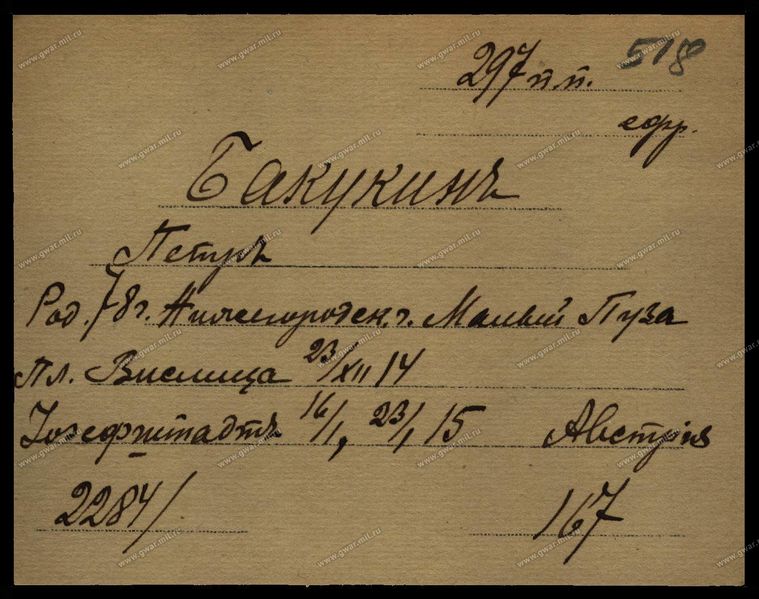 518
297 п.п.
ефр.
Бакукинъ
Петръ
Род. 78 г. Нижегородск. г. Малый Пуза
Пл. Вислица 23/XII 14
Іозефштадтъ 16/I, 23/I 15 Австрія
2284/ 167
www.gwar.mil.ru